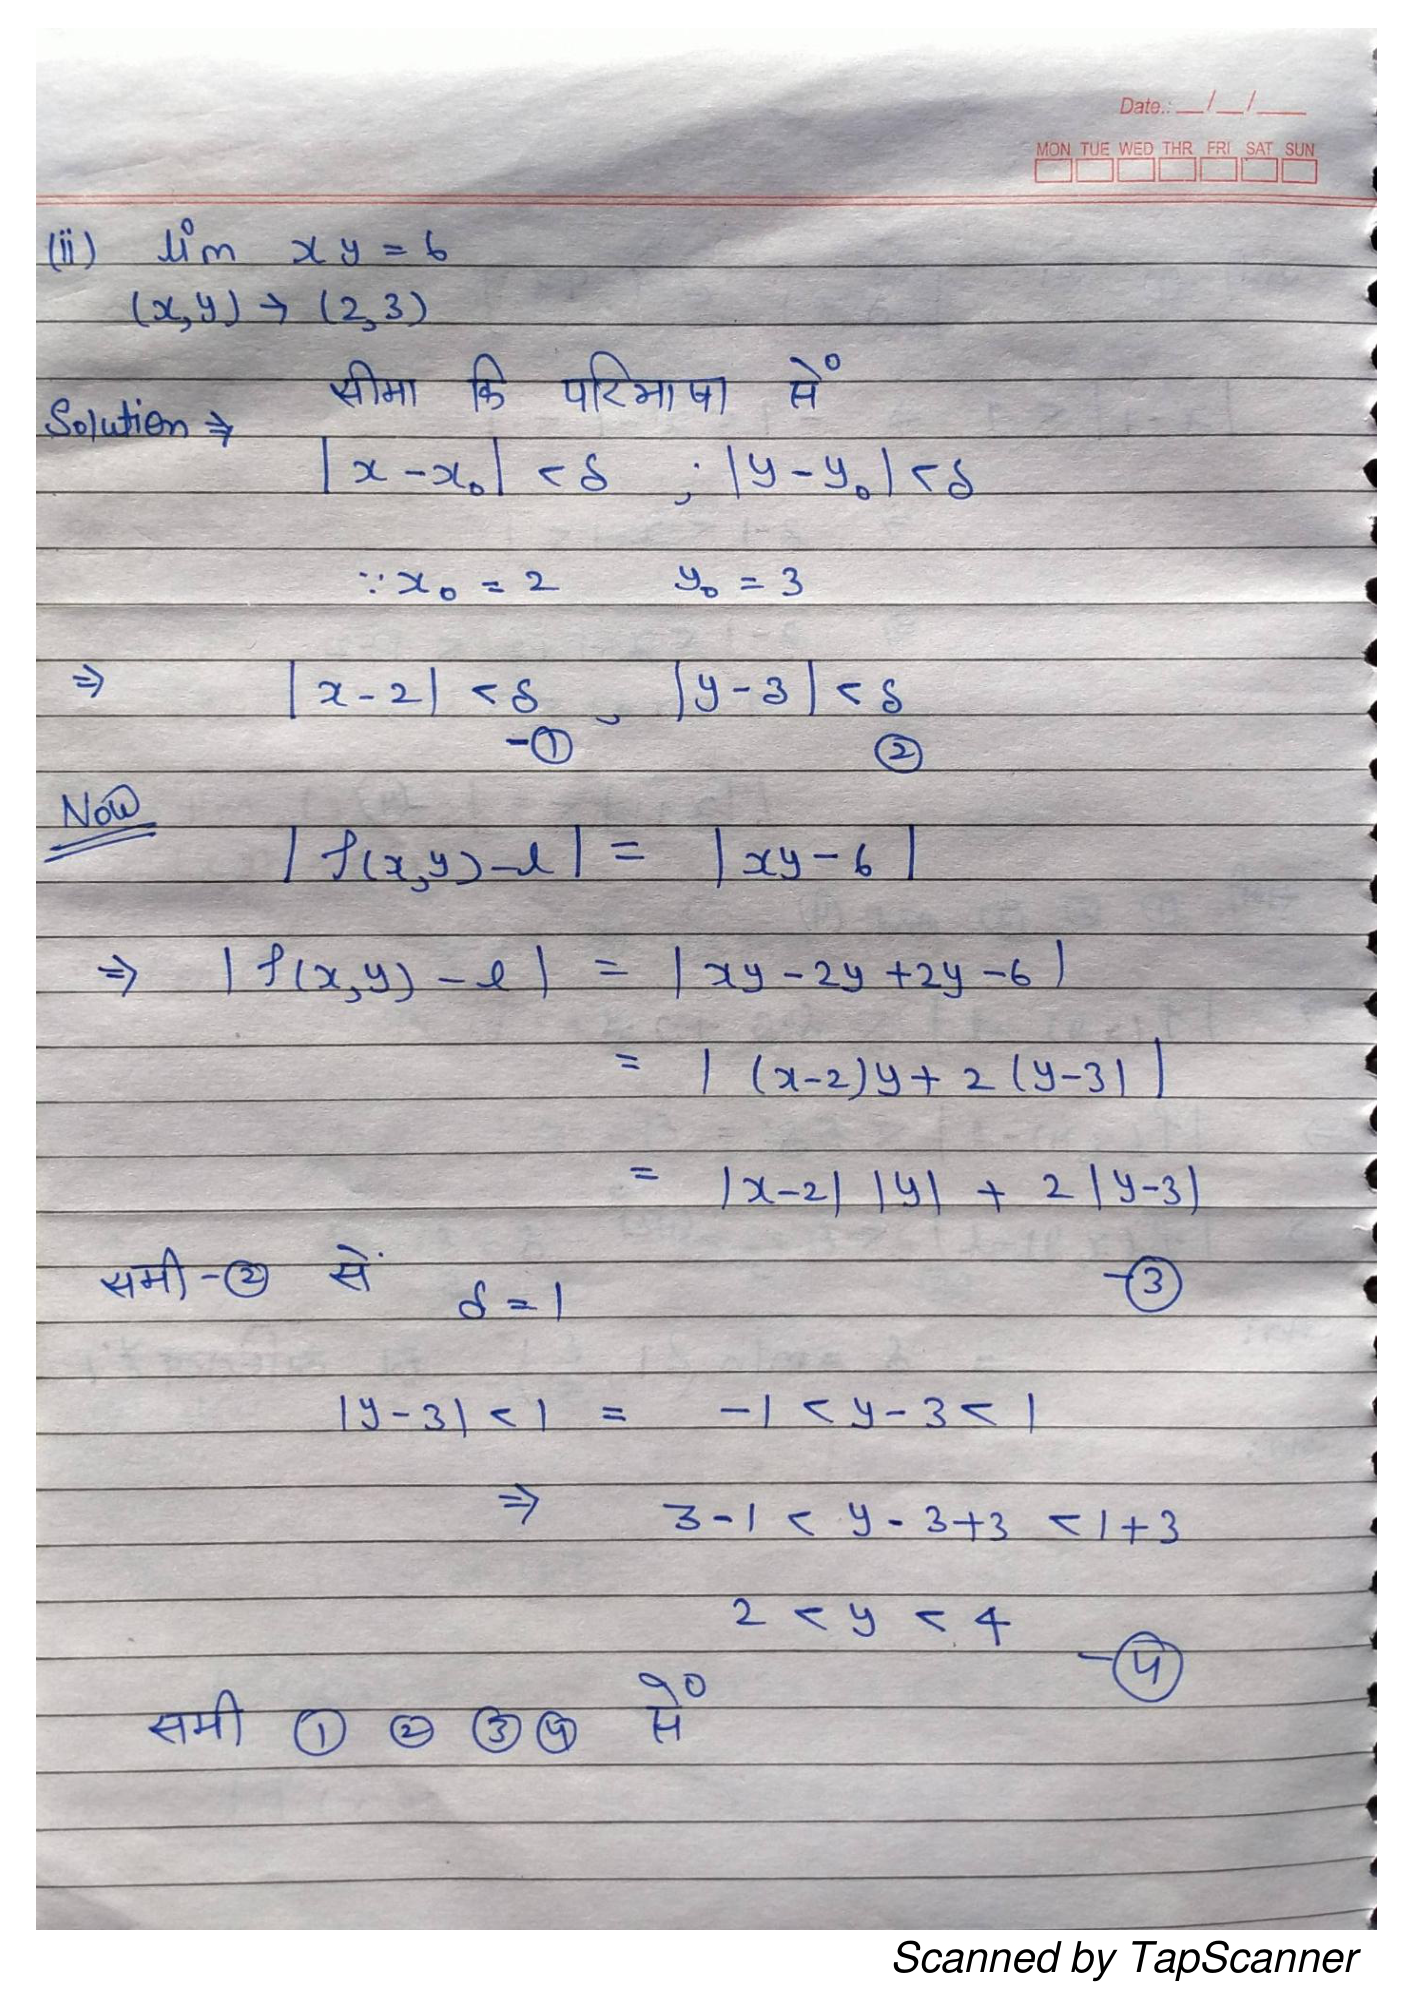 Date.: __/__/____
MON TUE WED THR FRI SAT SUN
(ii) lim xy = 6
(x,y) → (2,3)
सीमा कि परिभाषा सें
Solution ⇒
|x - x₀| < δ ; |y - y₀| < δ
∵ x₀ = 2 y₀ = 3
⇒ |x - 2| < δ , |y - 3| < δ
- ① ②
Now
|f(x,y) - l| = |xy - 6|
⇒ |f(x,y) - l| = |xy - 2y + 2y - 6|
= |(x-2)y + 2(y-3)|
= |x-2| |y| + 2|y-3|
समी - ② सें δ = 1 - ③
|y - 3| < 1 = -1 < y - 3 < 1
⇒ 3 - 1 < y - 3 + 3 < 1 + 3
2 < y < 4
- ④
समी ① ② ③ ④ सें
Scanned by TapScanner